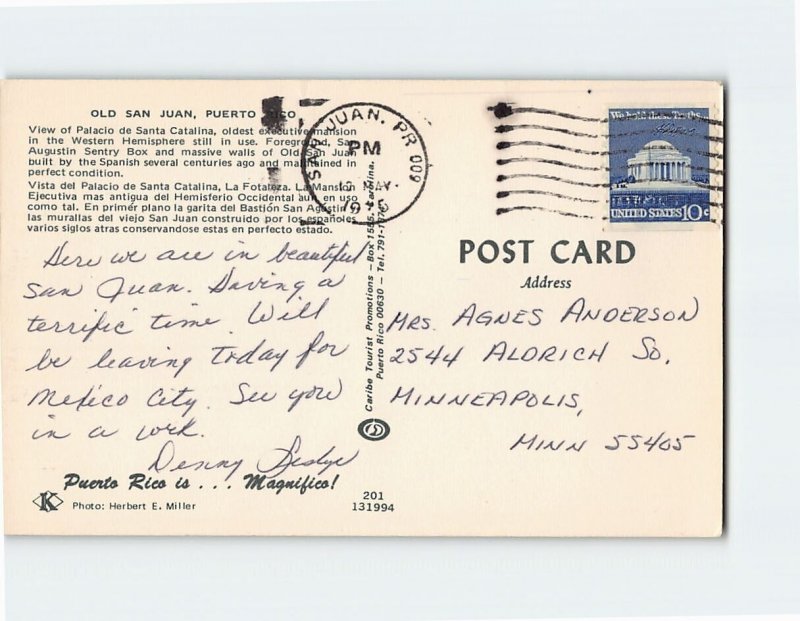 OLD SAN JUAN, PUERTO RICO
View of Palacio de Santa Catalina, oldest executive mansion
in the Western Hemisphere still in use. Foreground, San
Augustin Sentry Box and massive walls of Old San Juan
built by the Spanish several centuries ago and maintained in
perfect condition.
Vista del Palacio de Santa Catalina, La Fotaleza. La Mansion
Ejecutiva mas antigua del Hemisferio Occidental aun en uso
como tal. En primér plano la garita del Bastión San Agustin
las murallas del viejo San Juan construido por los españoles
varios siglos atras conservandose estas en perfecto estado.
Here we are in beautiful
San Juan. Having a
terrific time. Will
be leaving today for
Mexico City. See you
in a week.
Denny
Puerto Rico is . . . Magnifico!
K
Photo: Herbert E. Miller
201
131994
Caribe Tourist Promotions – Box 1555, Carolina.
Puerto Rico 00630 – Tel. 791-
SAN JUAN, PR 009
PM
MAY
We hold these Truths
UNITED STATES 10c
POST CARD
Address
MRS. AGNES ANDERSON
2544 ALDRICH SO.
MINNEAPOLIS,
MINN 55405